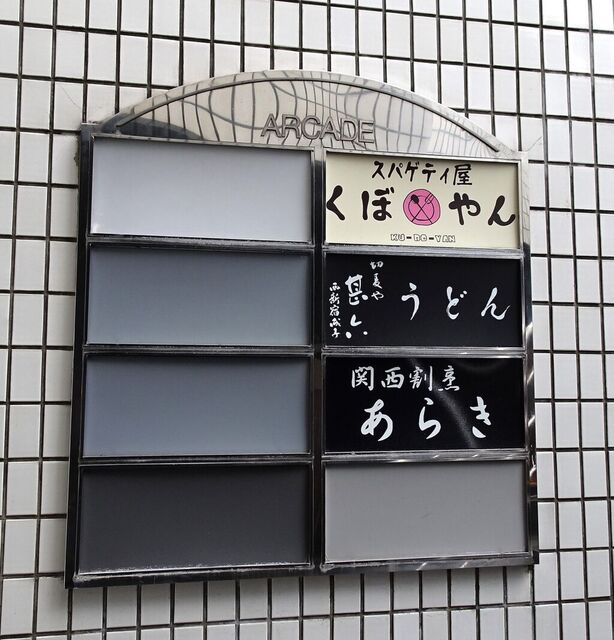 ARCADE
スパゲティ屋
くぼやん
KU-BO-YAN
切麦や
甚六
うどん
関西割烹
あらき